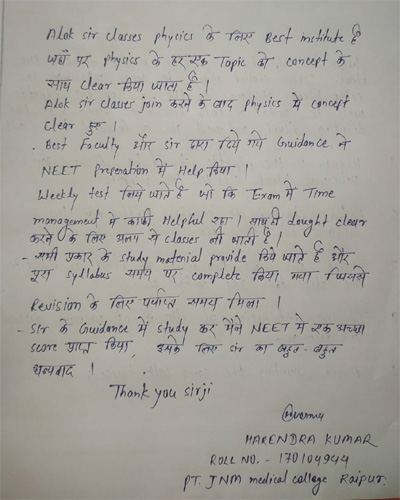 Alok sir classes physics के लिए Best institute है
जहाँ पर physics के हर एक Topic को concept के
साथ clear किया जाता है।
Alok sir classes join करने के बाद physics में concept
clear हुए।
. Best Faculty और sir द्वारा दिये गये Guidance ने
NEET Preperation में Help किया।
Weekly test लिये जाते हैं जो कि Exam में Time
management में काफी Helpful रहा। साथ ही dought clear
करने के लिए अलग से classes ली जाती है।
- सभी प्रकार के study material provide किये जाते हैं और
पूरा syllabus समय पर complete किया गया जिससे
Revision के लिए पर्याप्त समय मिला।
- Sir के Guidance में study कर मैंने NEET में एक अच्छा
score प्राप्त किया, इसके लिए sir का बहुत-बहुत
धन्यवाद।
Thank you sirji
HARENDRA KUMAR
ROLL NO. - 170104944
PT. JNM medical college Raipur.